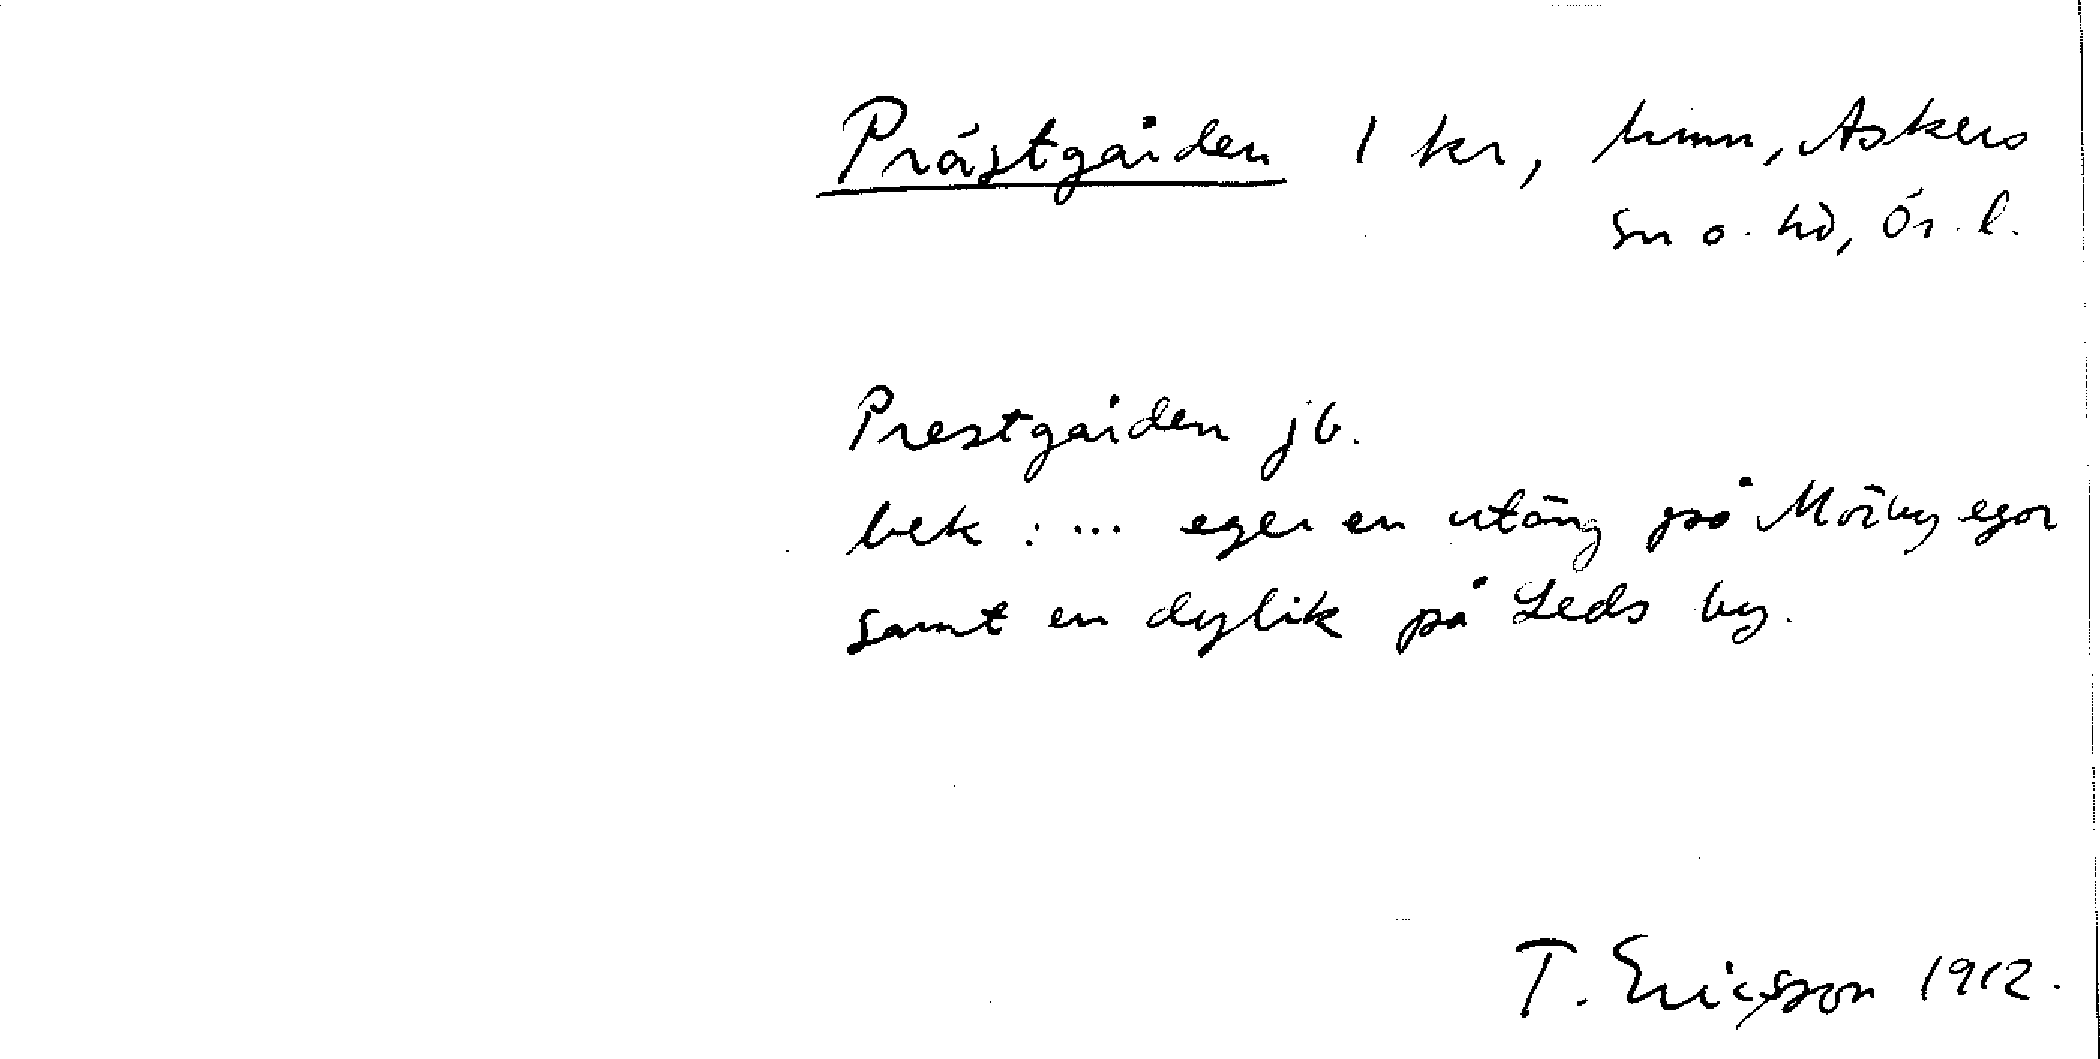 Prästgården 1 kr, hmn, Askers
sn o. hd, Ör. l.
Prestgården jb.
bek: ... eger en utäng på Mörby egor
samt en dylik på Leds by.
T. Ericsson 1912.